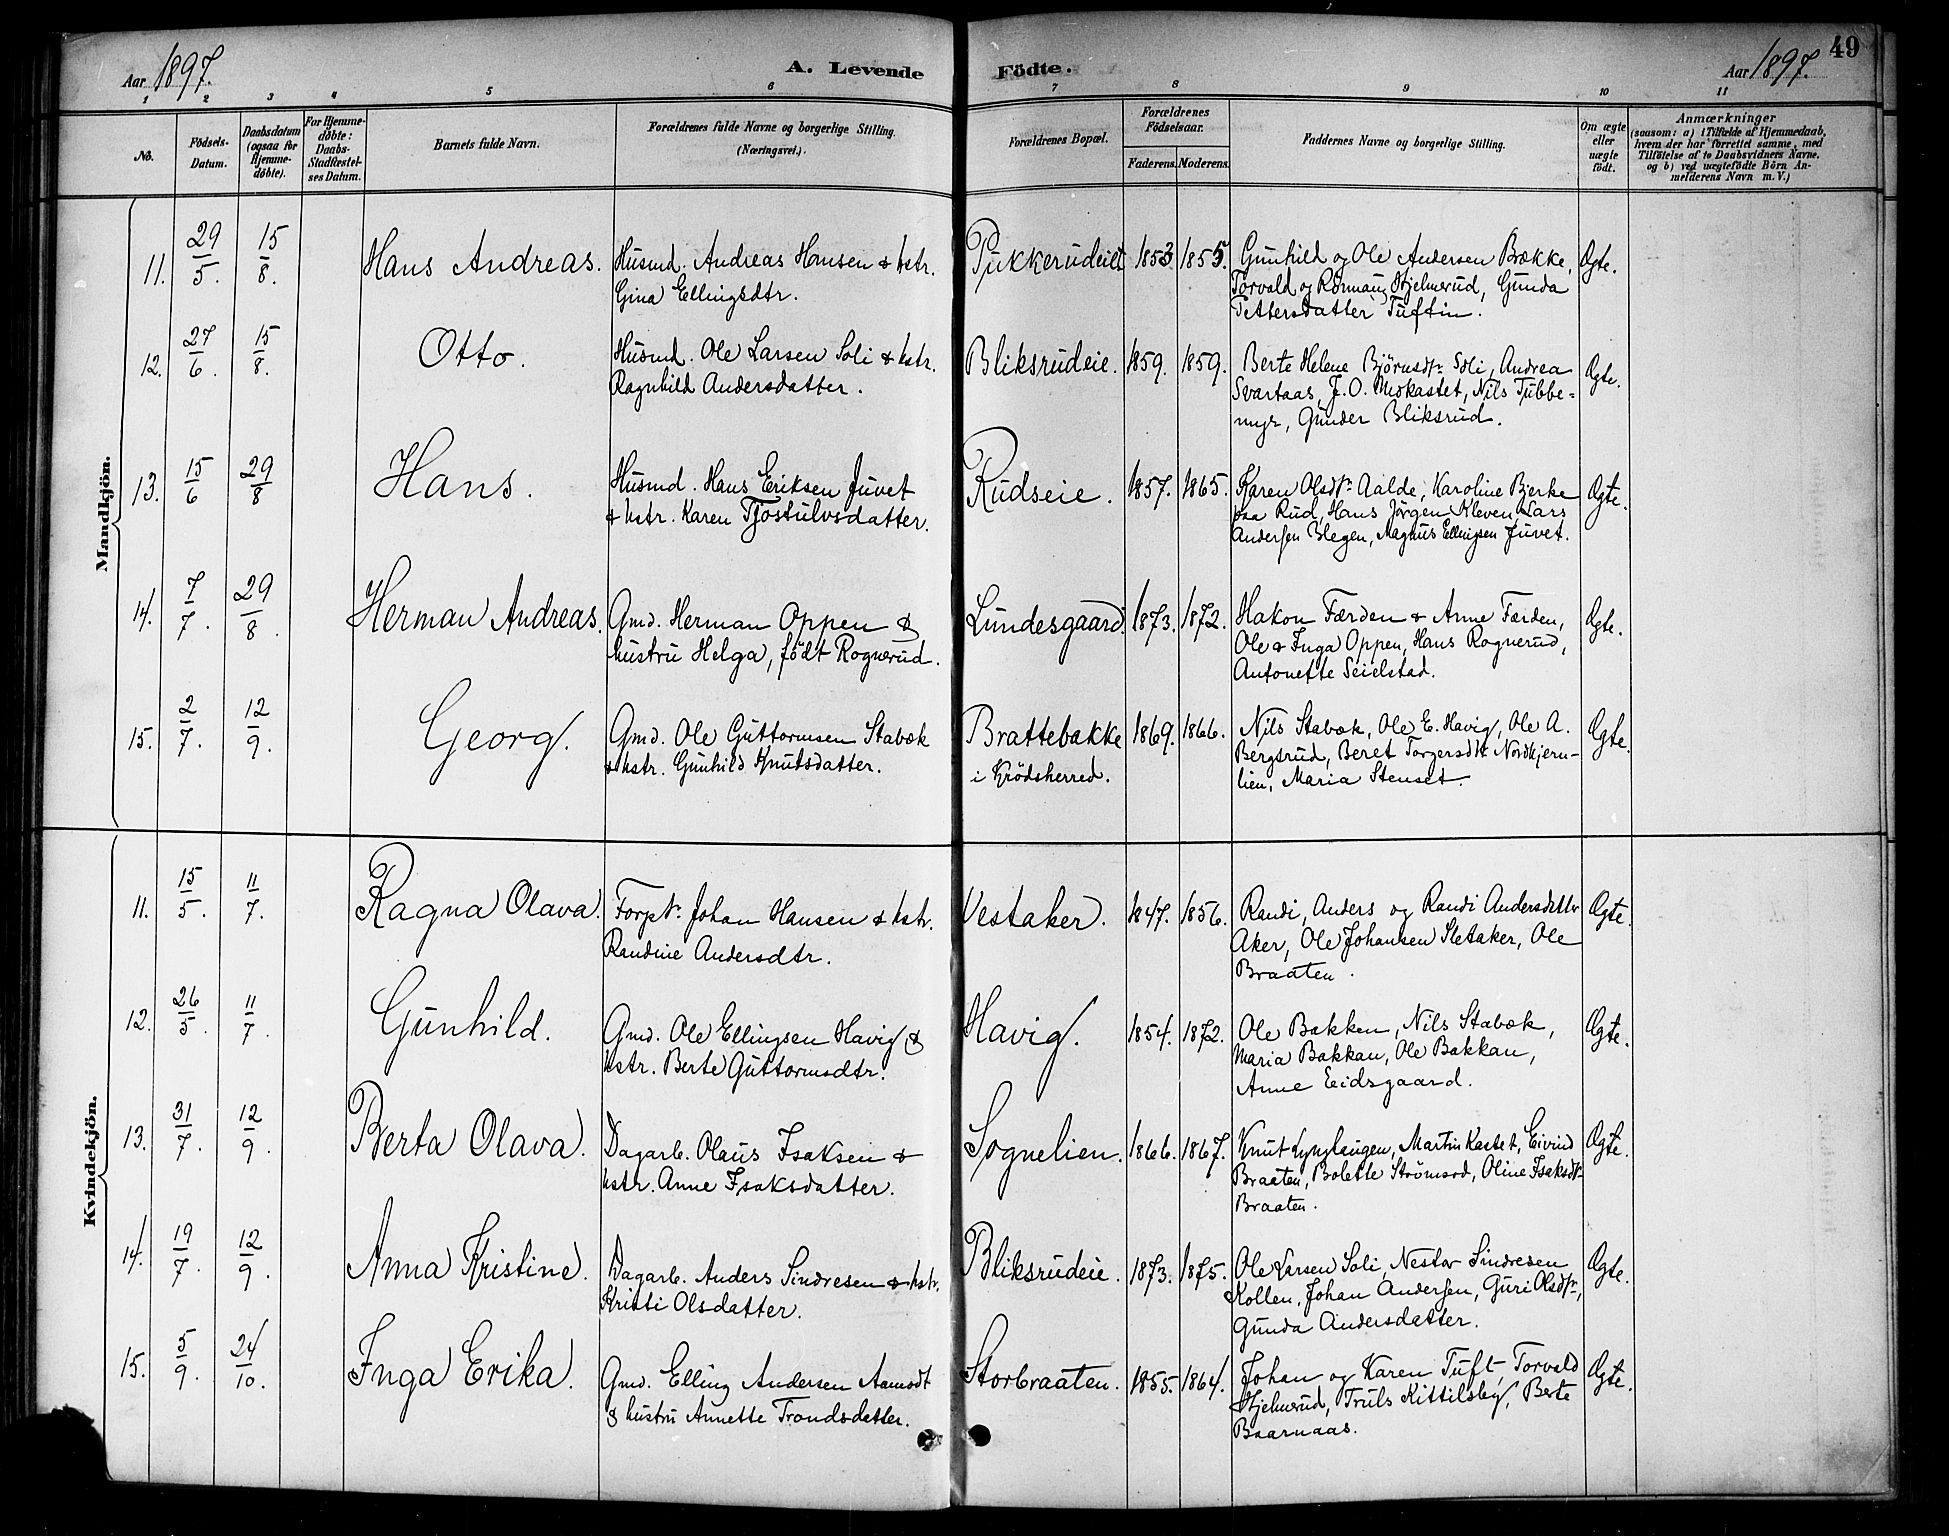 Aar 1897.
A. Levende
Födte.
Aar 1897.
49
1 2 3 4 5 6 7 8 9 10 11
No.
Födsels-
Datum.
Daabsdatum
(ogsaa for
Hjemme-
døbte).
For Hjemme-
döbte:
Daabs-
Stadfæstel-
ses Datum.
Barnets fulde Navn.
Forældrenes fulde Navne og borgerlige Stilling.
(Næringsvei.)
Forældrenes Bopæl.
Forældrenes
Födselsaar.
Faderens. Moderens.
Faddernes Navne og borgerlige Stilling.
Om ægte
eller
uægte
født.
Anmærkninger
(saasom: a) i Tilfælde af Hjemmedaab,
hvem der har forrettet samme, med
Tilföielse af to Daabsvidners Navne.
og b) ved uægtefödte Börn An-
melderens Navn m. V.)
Mandkjön.
11. 29/5. 15/8. Hans Andreas. Husmd. Andreas Hansen & hstr.
Gina Ellingsdtr.
Pukkerudeiet 1853 1855. Gunhild og Ole Andersen Bække,
Torvald og Hjelmerud, Gunda
Pettersdatter Tuftin.
Ægte.
12. 27/6. 15/8. Otto. Husmd. Ole Larsen Soli & hstr.
Ragnhild Andersdatter.
Bliksrudeie. 1859. 1859. Berte Helene Björnsdtr Soli, Andrea
Svartaas, J. O. Medkastet, Nils Tubbe-
myr, Gunder Bliksrud.
Ægte.
13. 15/6 29/8 Hans. Husmd. Hans Eriksen Juvet
& hstr. Karen Tjostulvsdatter.
Rudseie. 1857. 1865. Karen Olsdtr Aalde, Karoline Bjerke
paa Rud, Hans Jörgen Kleven, Lars
Andersen Vegen, Magnus Ellingsen Juvet.
Ægte.
14. 7/7. 29/8. Herman Andreas. Gmd. Herman Oppen &
hustru Helga, født Rognerud.
Lundesgaard. 1873. 1872. Hakon Færden & Anne Færden,
Ole & Inga Oppen, Hans Rognerud,
Antonette Seielstad.
Ægte.
15. 2/7. 12/9. Georg. Gmd. Ole Guttormsen Stabæk
& hstr. Gunhild Knutsdatter.
Brattebakke
i Krödsherred.
1869. 1866. Nils Stabæk, Ole E. Havig, Ole A.
Bergsrud, Beret Torgersdtr Nordhjern-
lien, Maria Stenset.
Ægte.
Kvindekjön.
11. 15/5. 11/7. Ragna Olava. Forptr. Johan Hansen & hstr.
Randine Andersdtr.
Vestaker. 1847. 1856. Randi, Anders og Randi Andersdttr
Aker, Ole Johansen Sletaker, Ole
Braaten.
Ægte.
12. 26/5. 11/7. Gunhild. Gmd. Ole Ellingsen Havig &
hstr. Berte Guttormsdtr.
Havig. 1854. 1872. Ole Bakken, Nils Stabæk,
Maria Bakkan, Ole Bakkan,
Anne Eidsgaard.
Ægte.
13. 31/7. 12/9. Berta Olava. Dagarb. Olaus Isaksen &
hstr. Anne Isaksdatter.
Sognelien. 1866. 1867. Knut Martin Kastet, Eivind
Braaten, Bolette Strömsod, Oline Isaksdtr
Braaten.
Ægte.
14. 19/7. 12/9. Anna Kristine. Dagarb. Anders Sindresen & hstr.
Kristi Olsdatter.
Bliksrudeie. 1873. 1875. Ole Larsen Soli, Nestor Sindresen
Kollen, Johan Andersen, Guri Olsdtr,
Gunda Andersdatter.
Ægte.
15. 5/9. 24/10. Inga Erika. Gmd. Elling Andersen Aamodt
& hustru Annette Trondsdatter.
Storbraaten. 1855. 1864. Johan og Karen Tuft, Torvald
Hjelmerud, Truls Kittilsby, Berte
Baarnaas.
Ægte.